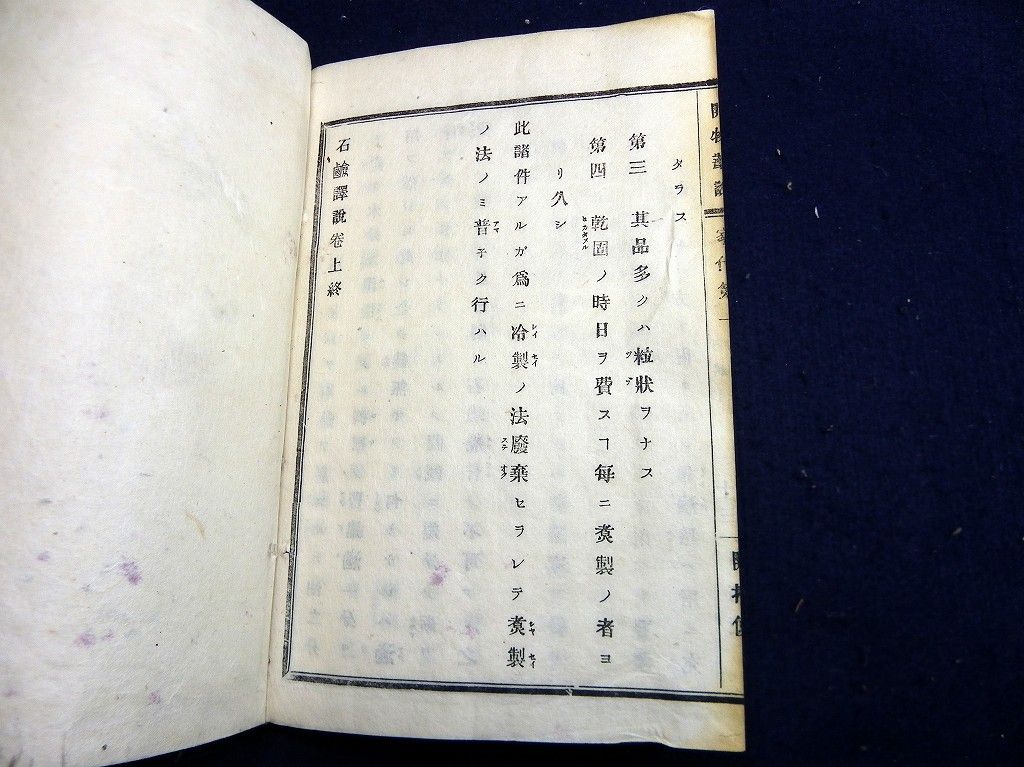 タラス
第三 其品多クハ粒狀ヲナス
第四 乾固ノ時日ヲ費スヿ每ニ煑製ノ者ヨ
リ久シ
此諸件アルガ爲ニ冷製ノ法廢棄セラレテ煑製
ノ法ノミ普チク行ハル
石鹼譯說卷上終